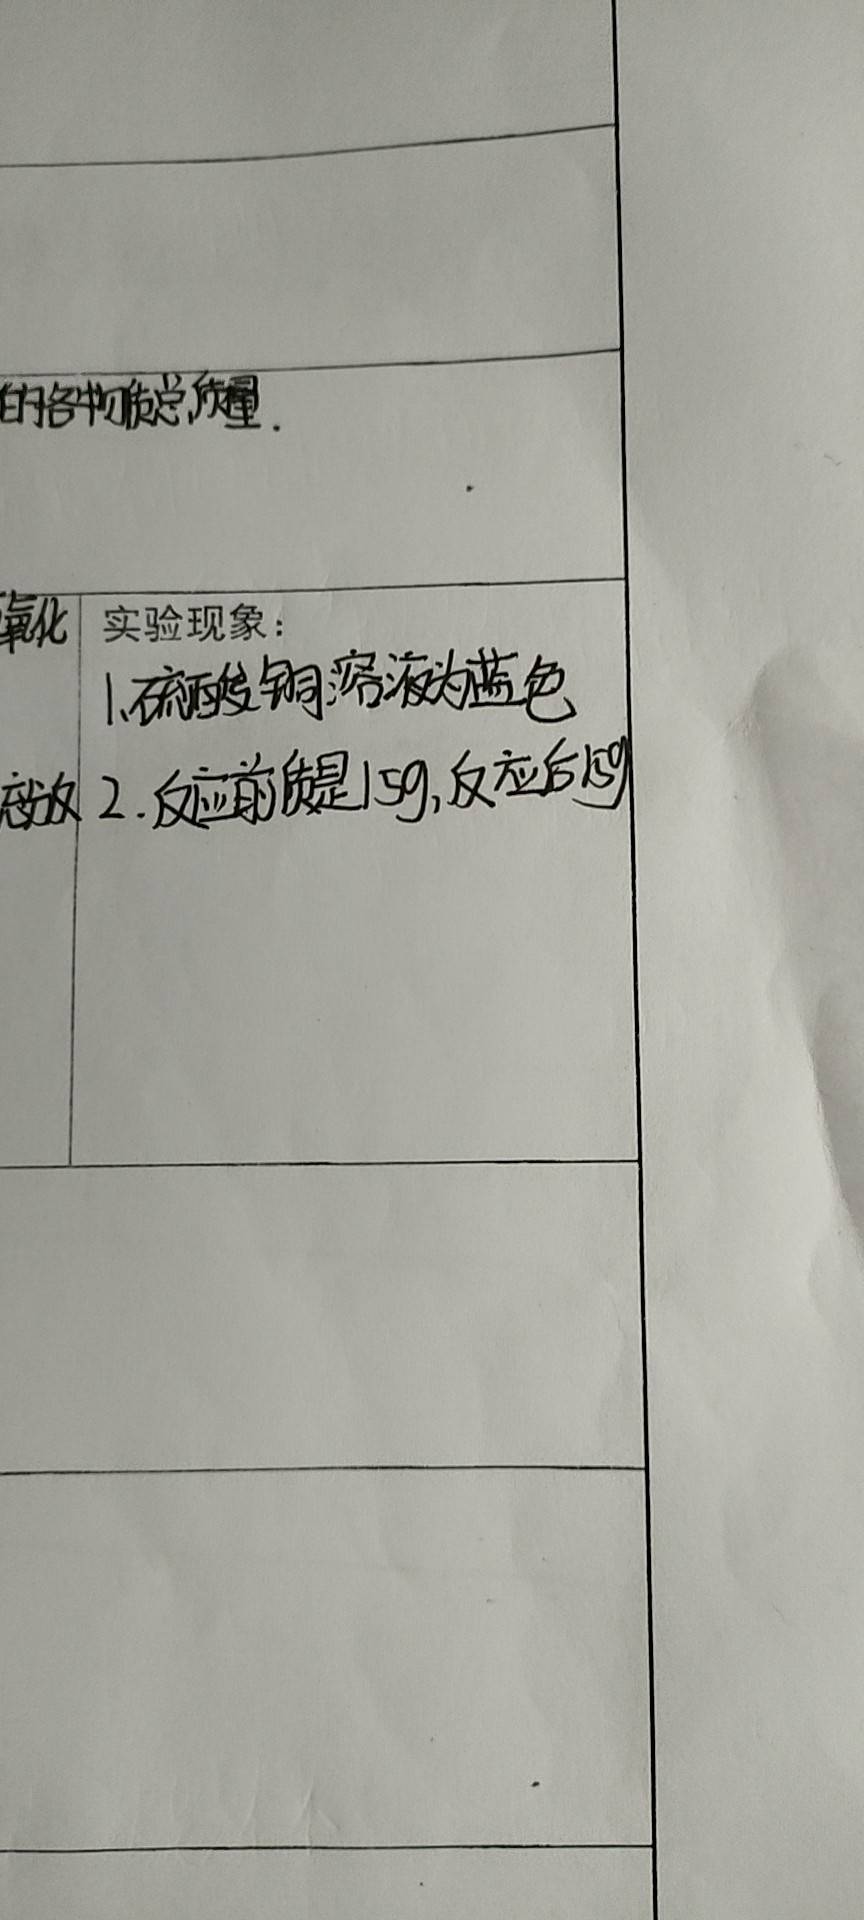 的各物质总质量.
氧化
实验现象：
1.硫酸铜溶液为蓝色
2.反应前质量15g,反应后15g